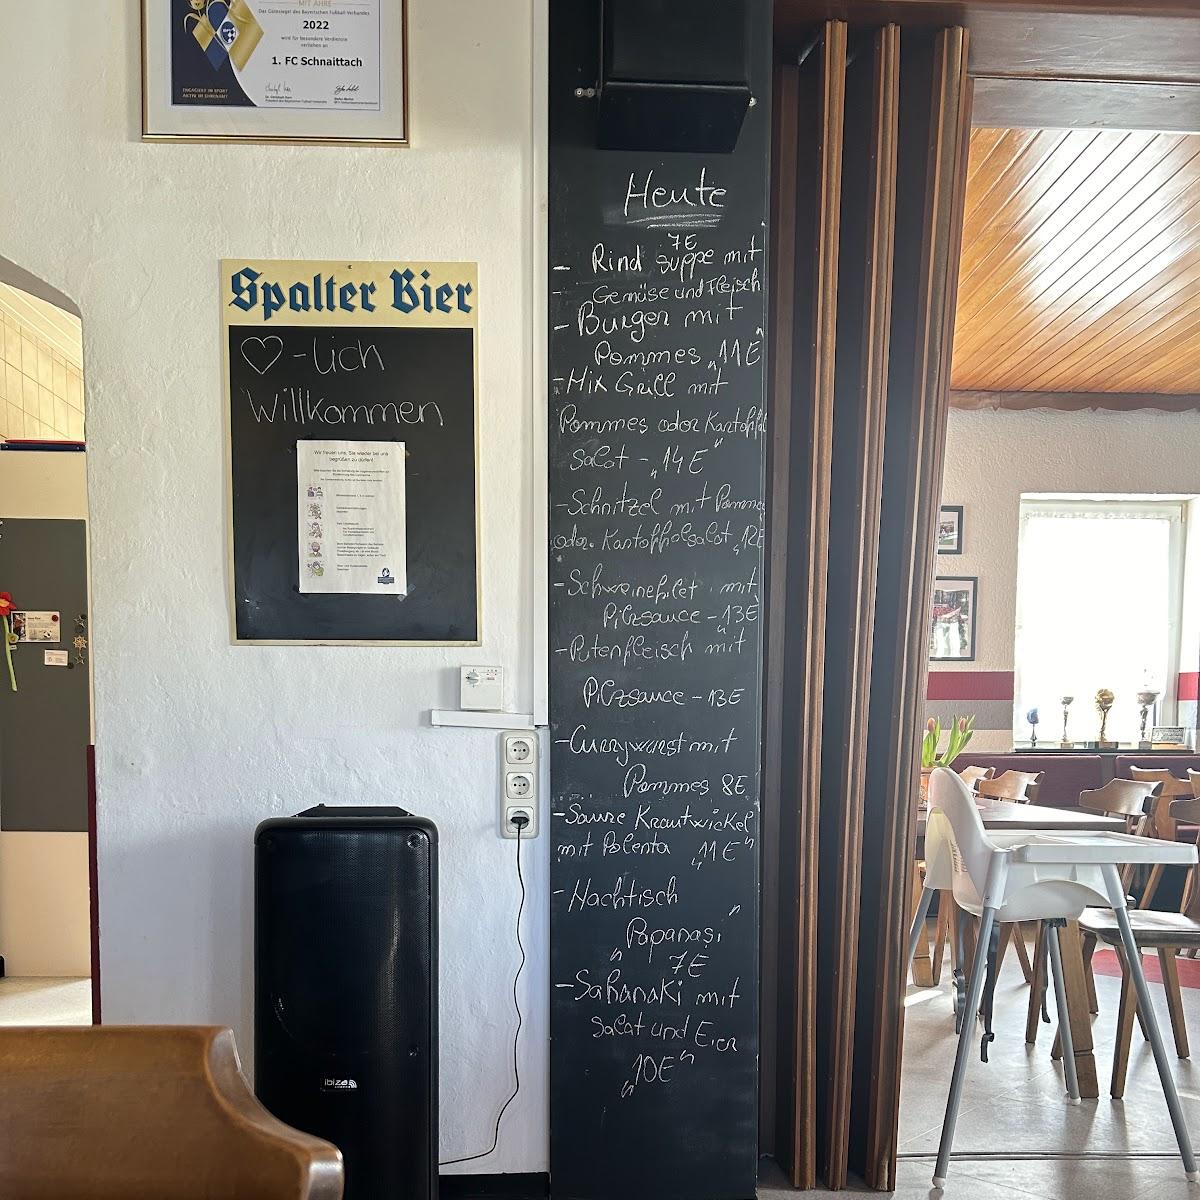 MIT ÄHRE
Das Gütesiegel des Bayerischen Fußball-Verbandes
2022
wird für besondere Verdienste
verliehen an
1. FC Schnaittach
ENGAGIERT IM SPORT
AKTIV IM EHRENAMT
Spalter Bier
♡-lich
Willkommen
Wir freuen uns, Sie wieder bei uns
begrüßen zu dürfen!
Heute
7E
- Rind suppe mit
- Gemüse und Fleisch
- Burger mit
Pommes „11E"
- Mix Grill mit
Pommes oder Kartoffel
Salat - „14E"
- Schnitzel mit Pommes
oder Kartoffelsalat „12E
- Schweinefilet mit
Pilzsauce - „13E"
- Putenfleisch mit
Pilzsauce - 13E
- Currywurst mit
Pommes 8E
- Saure Krautwickel
mit Polenta „11E"
- Nachtisch
„Papanași"
7E
- Saganaki mit
Salat und Eier
„10E"
ibiza